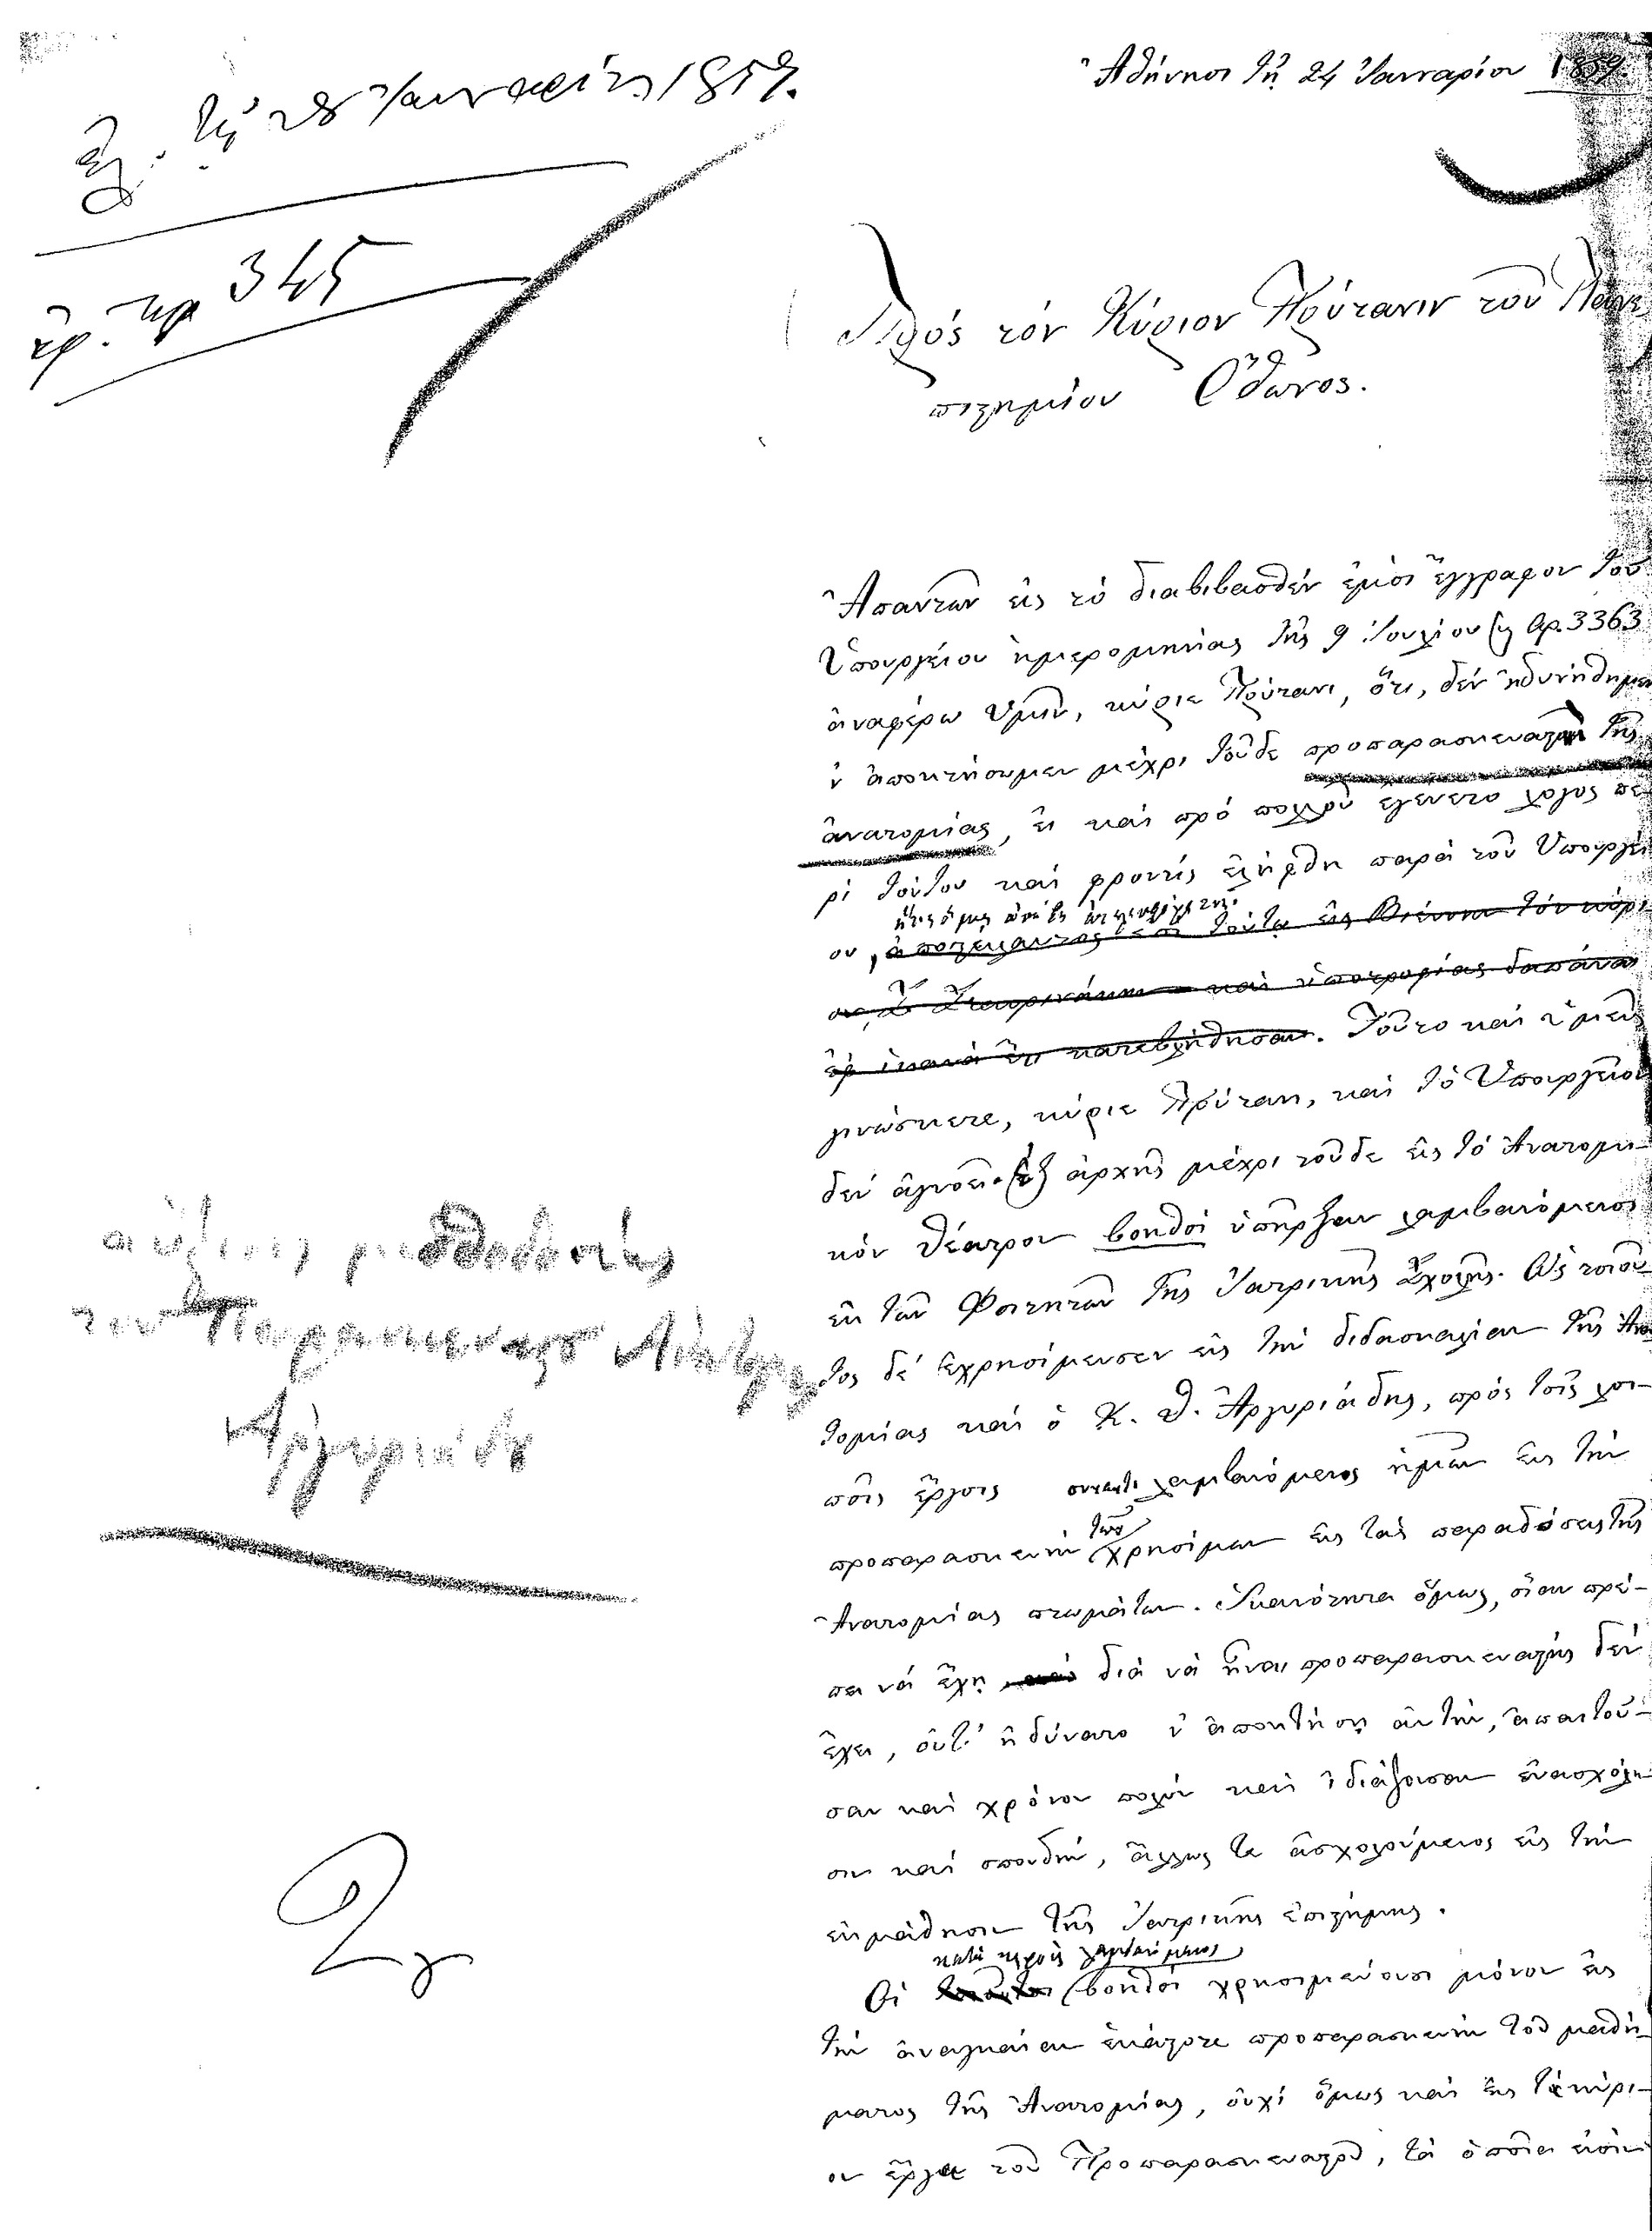 ἐλ. τῇ 28 Ἰανουαρίου 1859.
ἀρ. πρ 345
Ἀθήνησι τῇ 24 Ἰανουαρίου 1859.
Πρὸς τὸν Κύριον Πρύτανιν τοῦ Πανε
πιστημίου Ὄθωνος.
Ἀπαντῶν εἰς τὸ διαβιβασθέν ἐμοὶ ἔγγραφον τοῦ
Ὑπουργείου ἡμερομηνίας τῆς 9 Ἰουλίου Ἀρ. 3363
ἀναφέρω ὑμῖν, κύριε Πρύτανι, ὅτι, δέν ἠδυνήθημεν
ν' ἀποκτήσωμεν μέχρι τοῦδε προπαρασκευαστὴν τῆς
ἀνατομίας, εἰ καὶ πρὸ πολλοῦ ἐγένετο λόγος πε
ρὶ τούτου καὶ φροντίς ἐλήφθη παρὰ τοῦ Ὑπουργεί
ἥτις ὅμως
ου, ἀποστείλαντος ἐπὶ τούτῳ εἰς Βιέννην τὸν κύρι
ον καὶ ὑποτροφίας δαπάναι
ἱκαναὶ κατεβλήθησαν. Τοῦτο καὶ ὑμεῖς
γινώσκετε, κύριε Πρύτανι, καὶ τὸ Ὑπουργεῖον
δέν ἀγνοεῖ. Ἐξ ἀρχῆς μέχρι τοῦδε εἰς τὸ Ἀνατομι-
κόν Θέατρον βοηθοὶ ὑπῆρξαν λαμβανόμενοι
ἐκ τῶν Φοιτητῶν τῆς Ἰατρικῆς Σχολῆς. Ὡς τοιοῦ-
τος δέ ἐχρησίμευσεν εἰς τὴν διδασκαλίαν τῆς Ἀνα
τομίας καὶ ὁ Κ. Θ. Ἀργυριάδης, πρὸς τοῖς λοι-
ποῖς ἔργοις συναντιλαμβανόμενος ἡμῶν εἰς τὴν
προπαρασκευὴν τῶν χρησίμων εἰς τὰς παραδόσεις τῆς
Ἀνατομίας πτωμάτων. Ἱκανότητα ὅμως, οἵαν πρέ-
πει νά ἔχῃ διὰ νὰ ἦναι προπαρασκευαστής δέν
ἔχει, οὔτ' ἠδύνατο ν' ἀποκτήσῃ αὐτὴν, ἀπαιτοῦ-
σαν καὶ χρόνον πολύν καὶ ἰδιάζουσαν ἐνασχόλη
σιν καὶ σπουδήν, ἄλλως τε ἀσχολούμενος εἰς τὴν
ἐκμάθησιν τῆς Ἰατρικῆς ἐπιστήμης.
κατὰ καιροὺς λαμβανόμενοι
Οἱ τοιοῦτοι βοηθοὶ χρησιμεύουσι μόνον εἰς
τὴν ἀναγκαίαν ἑκάστοτε προπαρασκευὴν τοῦ μαθή-
ματος τῆς Ἀνατομίας, οὐχὶ ὅμως καὶ εἰς τὰ κύρι-
α ἔργα τοῦ Προπαρασκευαστοῦ, τὰ ὁποῖα εἰσὶν
αὔξησις μισθοδοσίας
τοῦ Παρασκευαστ Ἀνατομ
Ἀργυριάδου